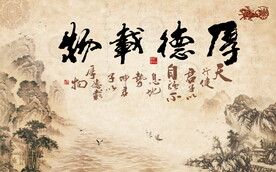 厚德載物
天行健
君子以
自強不
息地
勢坤君
子以
厚德載
物